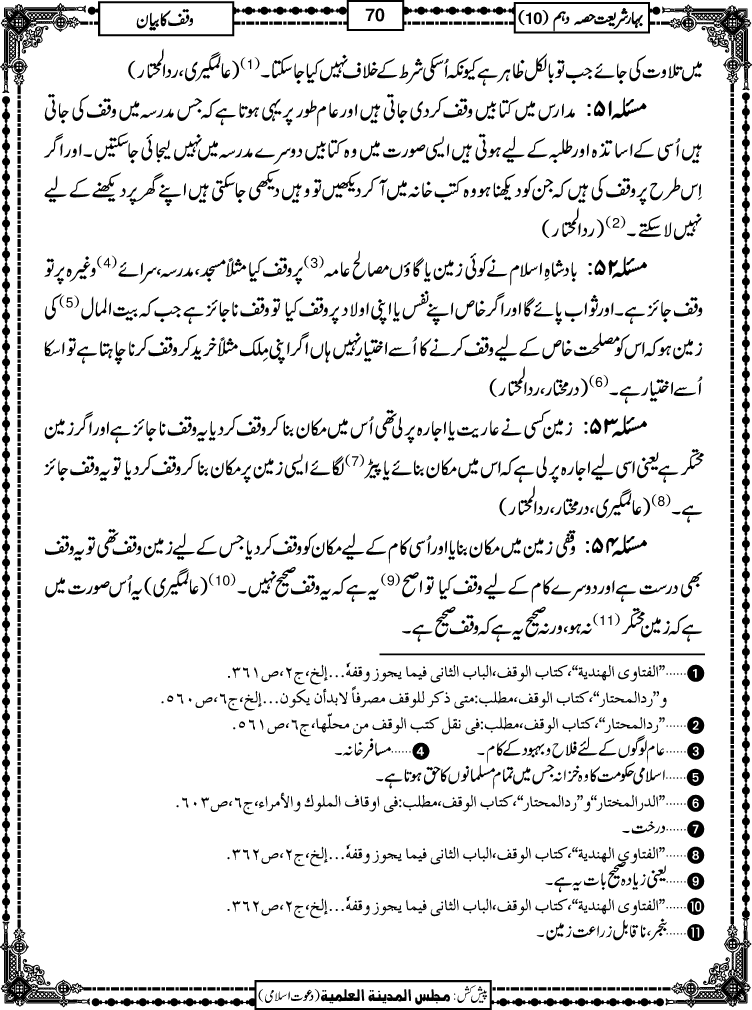 بہار شریعت حصہ دہم (10)
70
وقف کا بیان
میں تلاوت کی جائے جب تو بالکل ظاہر ہے کیونکہ اُسکی شرط کے خلاف نہیں کیا جاسکتا۔(1) (عالمگیری، ردالمحتار)
مسئلہ ۵۱: مدارس میں کتابیں وقف کردی جاتی ہیں اور عام طور پر یہی ہوتا ہے کہ جس مدرسہ میں وقف کی جاتی
ہیں اُسی کے اساتذہ اور طلبہ کے لیے ہوتی ہیں ایسی صورت میں وہ کتابیں دوسرے مدرسہ میں نہیں لیجائی جاسکتیں۔ اور اگر
اِس طرح پر وقف کی ہیں کہ جن کو دیکھنا ہو وہ کتب خانہ میں آکر دیکھیں تو وہیں دیکھی جاسکتی ہیں اپنے گھر پر دیکھنے کے لیے
نہیں لاسکتے۔(2) (ردالمحتار)
مسئلہ ۵۲: بادشاہِ اسلام نے کوئی زمین یا گاؤں مصالح عامہ(3) پر وقف کیا مثلاً مسجد، مدرسہ، سرائے(4) وغیرہ پر تو
وقف جائز ہے۔ اور ثواب پائے گا اور اگر خاص اپنے نفس یا اپنی اولاد پر وقف کیا تو وقف ناجائز ہے جب کہ بیت المال(5) کی
زمین ہو کہ اس کو مصلحت خاص کے لیے وقف کرنے کا اُسے اختیار نہیں ہاں اگر اپنی مِلک مثلاً خرید کر وقف کرنا چاہتا ہے تو اسکا
اُسے اختیار ہے۔(6) (درمختار، ردالمحتار)
مسئلہ ۵۳: زمین کسی نے عاریت یا اجارہ پر لی تھی اُس میں مکان بنا کر وقف کردیا یہ وقف ناجائز ہے اور اگر زمین
محتکر ہے یعنی اسی لیے اجارہ پر لی ہے کہ اس میں مکان بنائے یا پیڑ(7) لگائے ایسی زمین پر مکان بنا کر وقف کردیا تو یہ وقف جائز
ہے۔(8) (عالمگیری، درمختار، ردالمحتار)
مسئلہ ۵۴: وقفی زمین میں مکان بنایا اور اُسی کام کے لیے مکان کو وقف کردیا جس کے لیے زمین وقف تھی تو یہ وقف
بھی درست ہے اور دوسرے کام کے لیے وقف کیا تو اصح(9) یہ ہے کہ یہ وقف صحیح نہیں۔(10) (عالمگیری) یہ اُس صورت میں
ہے کہ زمین محتکر(11) نہ ہو، ورنہ صحیح یہ ہے کہ وقف صحیح ہے۔
1 ......”الفتاوی الهندیة“، کتاب الوقف، الباب الثانی فیما یجوز وقفهٗ...إلخ، ج۲، ص۳۶۱.
و”ردالمحتار“، کتاب الوقف، مطلب: متی ذکر للوقف مصرفاً لابدأن یکون...إلخ، ج۶، ص۵۶۰.
2 ......”ردالمحتار“، کتاب الوقف، مطلب: فی نقل کتب الوقف من محلّها، ج۶، ص۵۶۱.
3 ......عام لوگوں کے لئے فلاح و بہبود کے کام۔ 4 ......مسافر خانہ۔
5 ......اسلامی حکومت کا وہ خزانہ جس میں تمام مسلمانوں کا حق ہوتا ہے۔
6 ......”الدرالمختار“ و”ردالمحتار“، کتاب الوقف، مطلب: فی اوقاف الملوك والأمراء، ج۶، ص۶۰۳.
7 ......درخت۔
8 ......”الفتاوی الهندیة“، کتاب الوقف، الباب الثانی فیما یجوز وقفهٗ...إلخ، ج۲، ص۳۶۲.
9 ......یعنی زیادہ صحیح بات یہ ہے۔
10 ......”الفتاوی الهندیة“، کتاب الوقف، الباب الثانی فیما یجوز وقفهٗ...إلخ، ج۲، ص۳۶۲.
11 ......بنجر، ناقابل زراعت زمین۔
پیش کش: مجلس المدینة العلمیة (دعوت اسلامی)